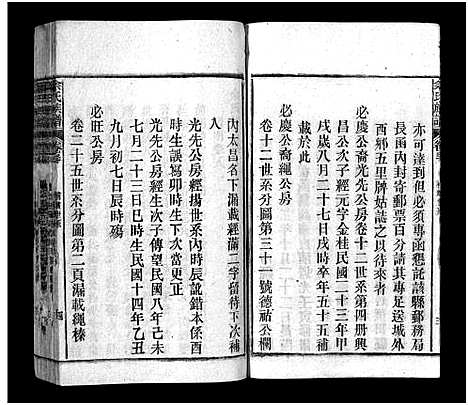 亦可達到但必須專函懇託該縣郵務局
長函內封寄郵票百分請其專足送城外
西鄉五里牌姑誌之以待來者
必慶公裔光先公房卷十二世系第四册興
昌公次子經元字金桂民國二十三年甲
戌歲八月二十七日戌時卒年五十五歲
載於此
必慶公裔繩公房
卷十二世系分圖第三十一號德祜公欄
內太昌名下漏載經蘭二字留待下次補
入
光先公房經揚世系內時辰訛錯本係酉
時生誤寫卯時生下次當更正
光先公房經生次子傳望民國八年己未
七月二十三日巳時生民國十四年乙丑
九月初七日辰時殤
必旺公房
卷二十五世系分圖第二頁漏載繩榛